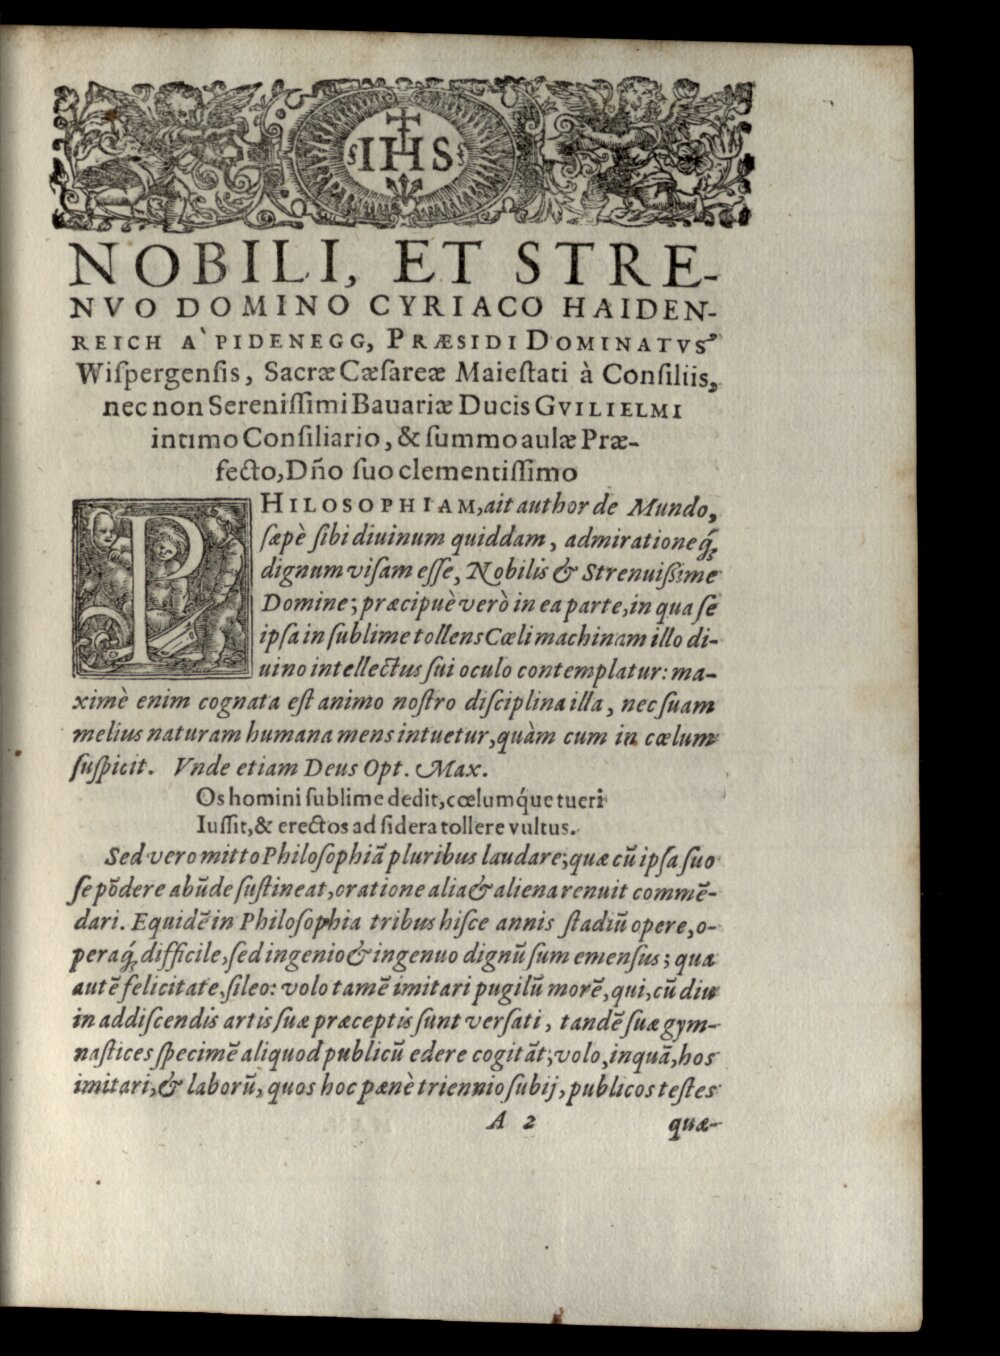 IHS
NOBILI, ET STRE-
NVO DOMINO CYRIACO HAIDEN-
REICH A` PIDENEGG, PRÆSIDI DOMINATVS
Wiſpergenſis, Sacræ Cæſareæ Maieſtati à Conſiliis,
nec non Sereniſſimi Bauariæ Ducis GVILIELMI
intimo Conſiliario, & ſummo aulæ Præ-
fecto, Dño ſuo clementiſſimo
PHILOSOPHIAM, ait author de Mundo,
ſæpè ſibi diuinum quiddam, admirationeq́;
dignum viſam eſſe, Nobilis & Strenuißime
Domine; præcipuè verò in ea parte, in qua ſe
ipſa in ſublime tollens Cœli machinam illo di-
uino intellectus ſui oculo contemplatur: ma-
ximè enim cognata eſt animo noſtro diſciplina illa, nec ſuam
melius naturam humana mens intuetur, quàm cum in cœlum
ſuſpicit. Vnde etiam Deus Opt. Max.
Os homini ſublime dedit, cœlumq́ue tueri
Iuſſit, & erectos ad ſidera tollere vultus.
Sed vero mitto Philoſophiã pluribus laudare; quæ cũ ipſa ſuo
ſe põdere abũde ſuſtineat, oratione alia & aliena renuit commẽ-
dari. Equidẽ in Philoſophia tribus hiſce annis ſtadiũ opere, o-
peraq́;, difficile, ſed ingenio & ingenuo dignũ ſum emenſus; qua
autẽ felicitate, ſileo: volo tamẽ imitari pugilũ morẽ, qui, cũ diu
in addiſcendis artis ſuæ præceptis ſunt verſati, tandẽ ſuæ gym-
naſtices ſpecimẽ aliquod publicũ edere cogitãt; volo, inquã, hos
imitari, & laborũ, quos hoc pænè triennio ſubij, publicos teſtes
A 2 quæ-